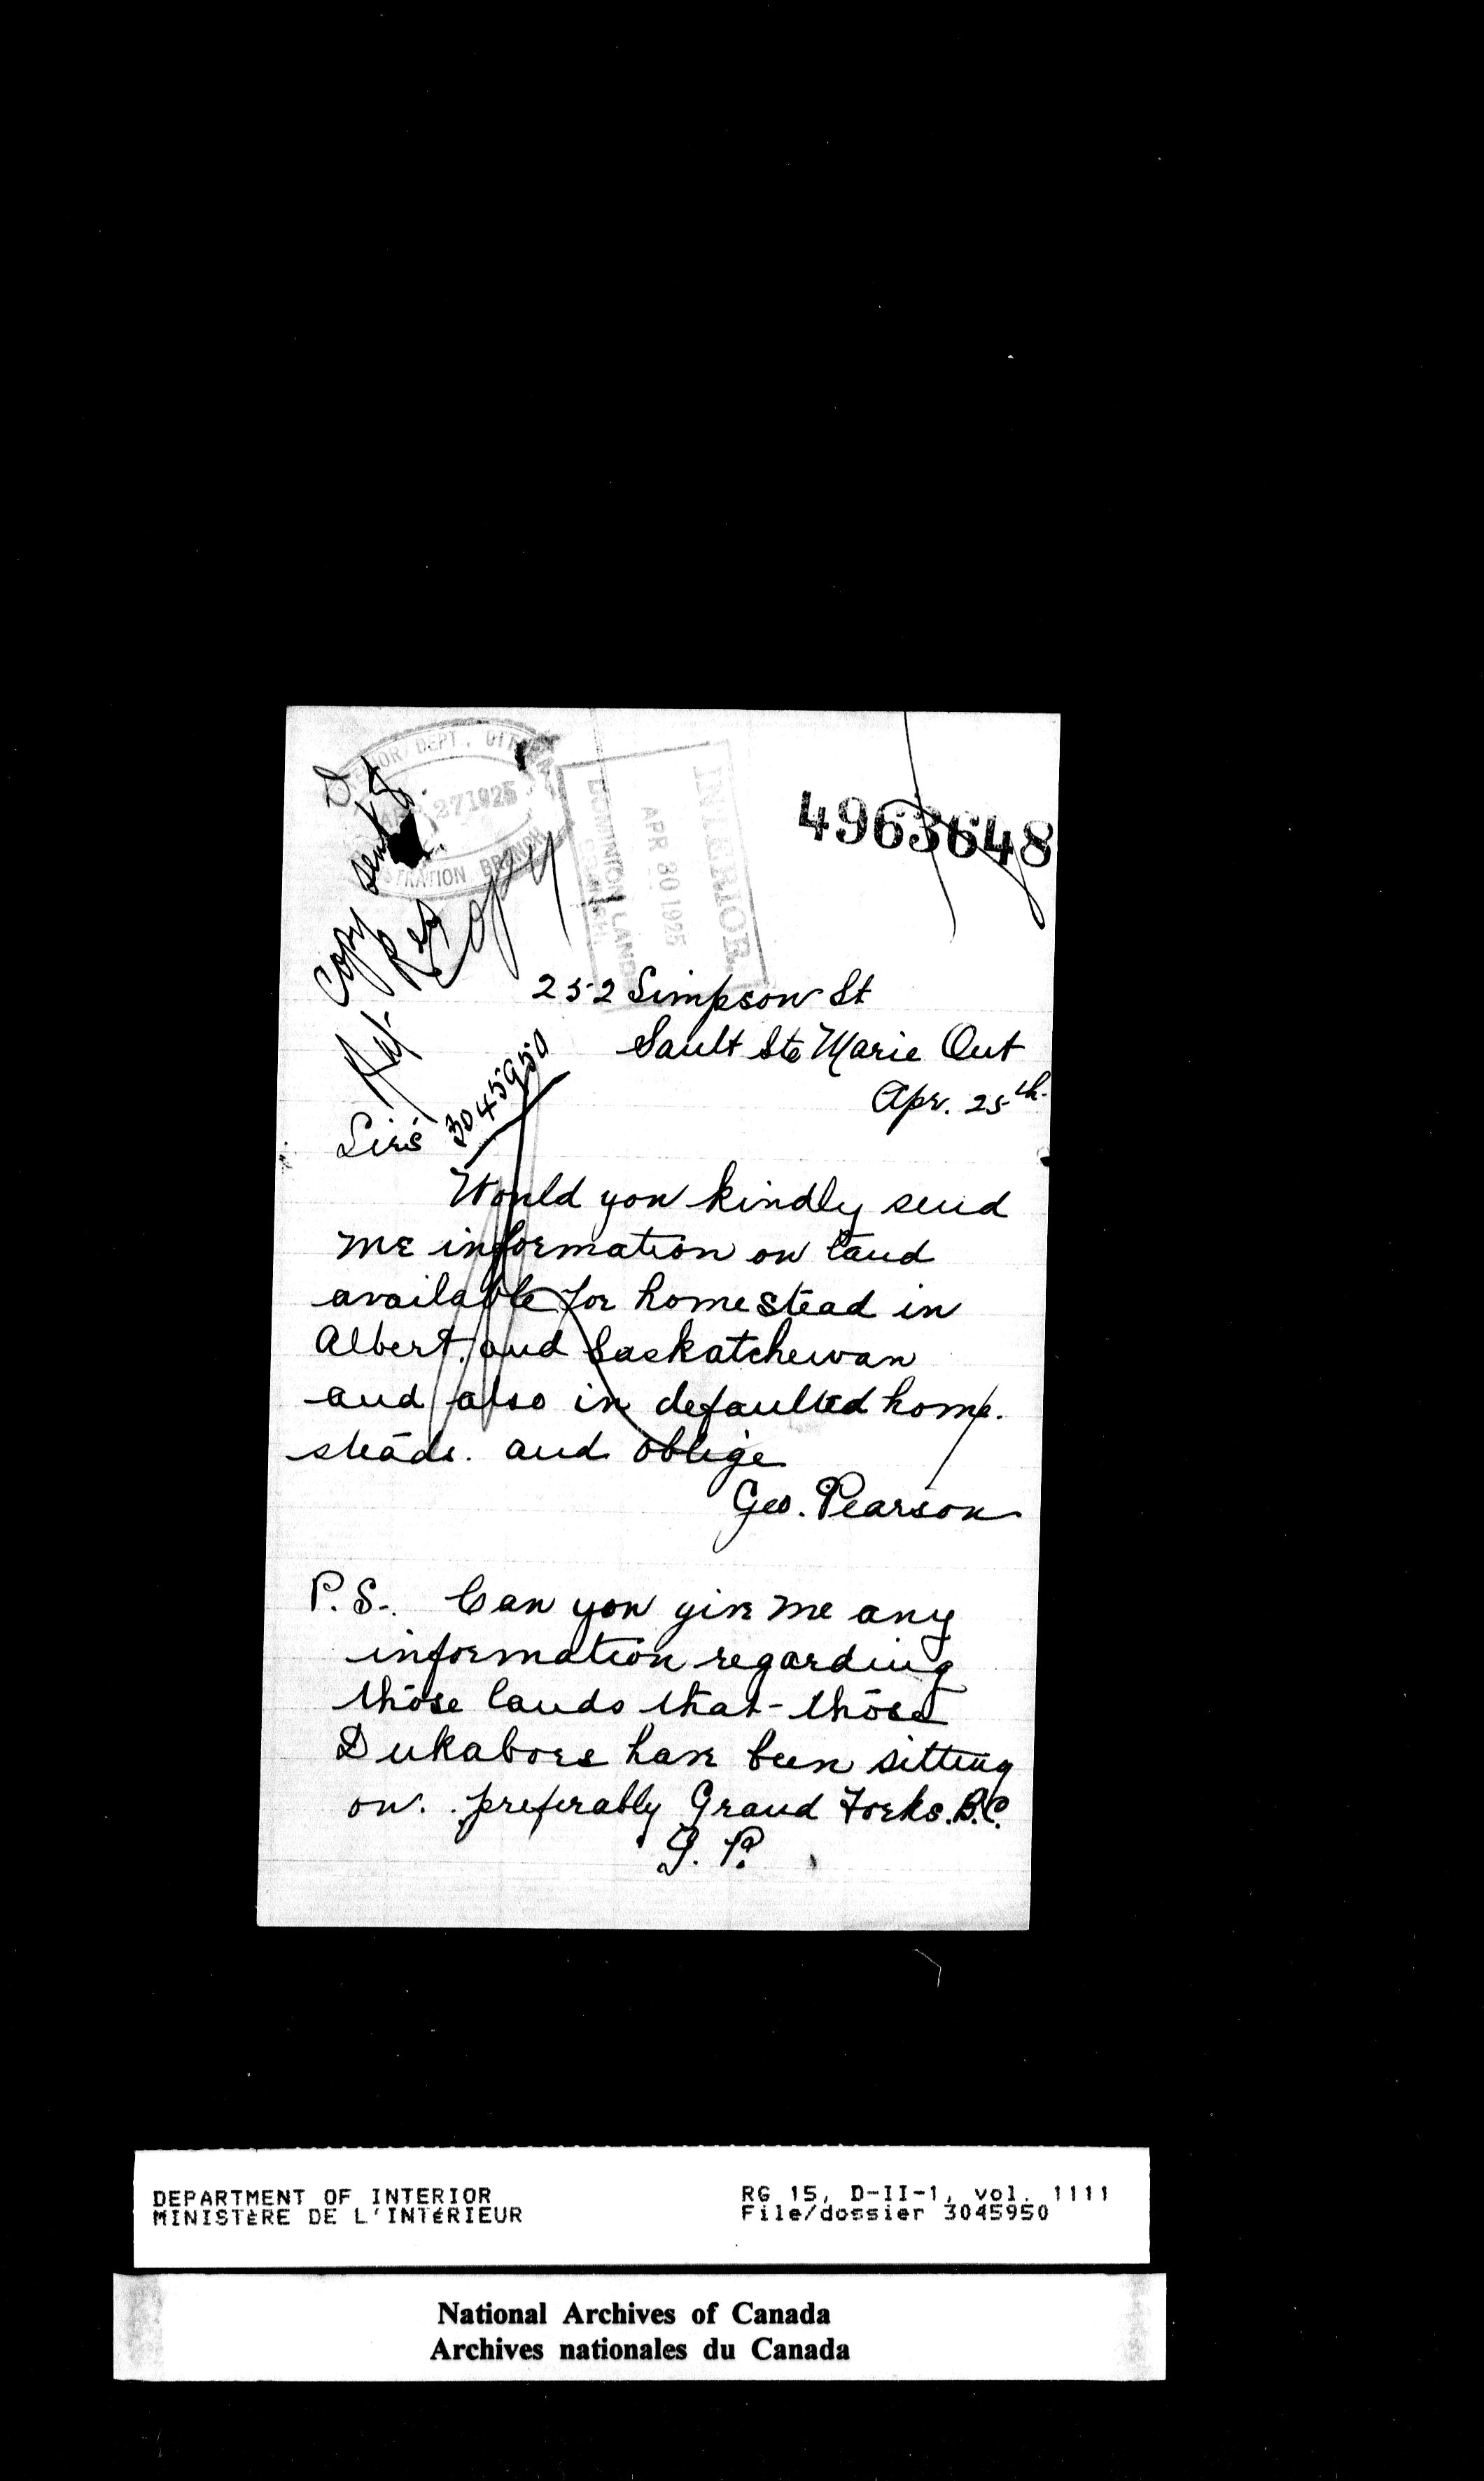 INTERIOR DEPT., OTTAWA
APR 27 1925
REGISTRATION BRANCH
INTERIOR
APR 30 1925
DOMINION LANDS
4963648
Copy sent
Copy
3045950
252 Simpson St
Sault Ste Marie Ont
Apr. 25th.
Sirs
Would you kindly send
me information on land
available for homestead in
Albert. and Saskatchewan
and also in defaulted home.
steads. and oblige
Geo. Pearson
P.S.. Can you give me any
information regarding
those lands that - those
Dukabors have been sitting
on. . preferably Grand Forks. B.C.
G. P.
DEPARTMENT OF INTERIOR
MINISTÈRE DE L'INTÉRIEUR
RG 15, D-II-1, vol. 1111
File/dossier 3045950
National Archives of Canada
Archives nationales du Canada